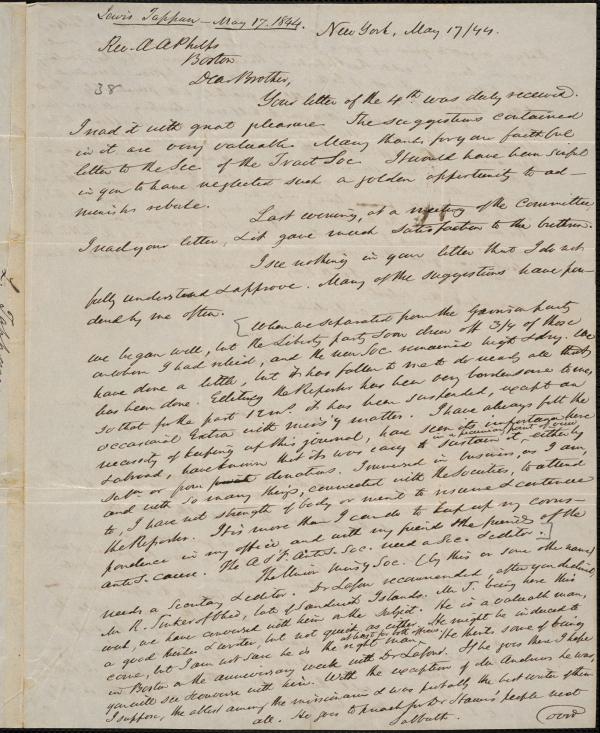 Lewis Tappan – May 17. 1844.
New York, May 17/44.
Rev. A A Phelps
Boston
38
Dear Brother,
Your letter of the 4th was duly received.
I read it with great pleasure. The suggestions contained
in it are very valuable. Many thanks for your faithful
letter to the Sec. of the Tract Soc. I would have been
in you to have neglected such a golden opportunity to ad-
minister rebuke.
Last evening, at a meeting of the Committee
I read your letter, & it gave much satisfaction to the brethren.
I see nothing in your letter that I do not
fully understand & approve. Many of the suggestions have been pon-
dered by me often.
[When we separated from the Garrison party
we began well, but the Liberty party soon drew off 3/4 of those
on whom I had relied, and the new Soc. remained high & dry. We
have done a little, but it has fallen to me to do nearly all that
has been done. Editing the Reporter has been very burdensome to me,
so that for the past 12 mo. it has been suspended, except an
occasional Extra with miss'y matter. I have always felt the
necessity of keeping up this journal, have seen its importance here
& abroad, have known that it was easy in a pecuniary point of view to sustain it, either by
subs. or from donations. Immersed in business, as I am,
and with so many things, connected with the Societies, to attend
to, I have not strength of body or mind to resume & continue
the Reporter. It is more than I can do to keep up my corres-
pondence in my office and with my friends & the friends of the
Anti S. cause. The A & F. Anti S. Soc. need a Sec. & editor.]
The Union Miss'y Soc. (by this or some other name)
needs a Secretary & editor. Dr Lafon recommended, after you declined,
Mr R. Tinker of Ohio, late of Sandwich Islands. Mr T. being here this
week, we have conversed with him on the subject. He is a valuable man,
a good thinker & writer, but not quick as either. He might be induced to
come, but I am not sure he is the right man, at least for both offices. He thinks some of being
in Boston on the anniversary week with Dr Lafon. If he goes there I hope
you will see & converse with him. With the exception of Mr Andrews he was,
I suppose, the ablest among the missionaries & was probably the best writer of them
all. He goes to preach for Dr people next
Sabbath.
(over)